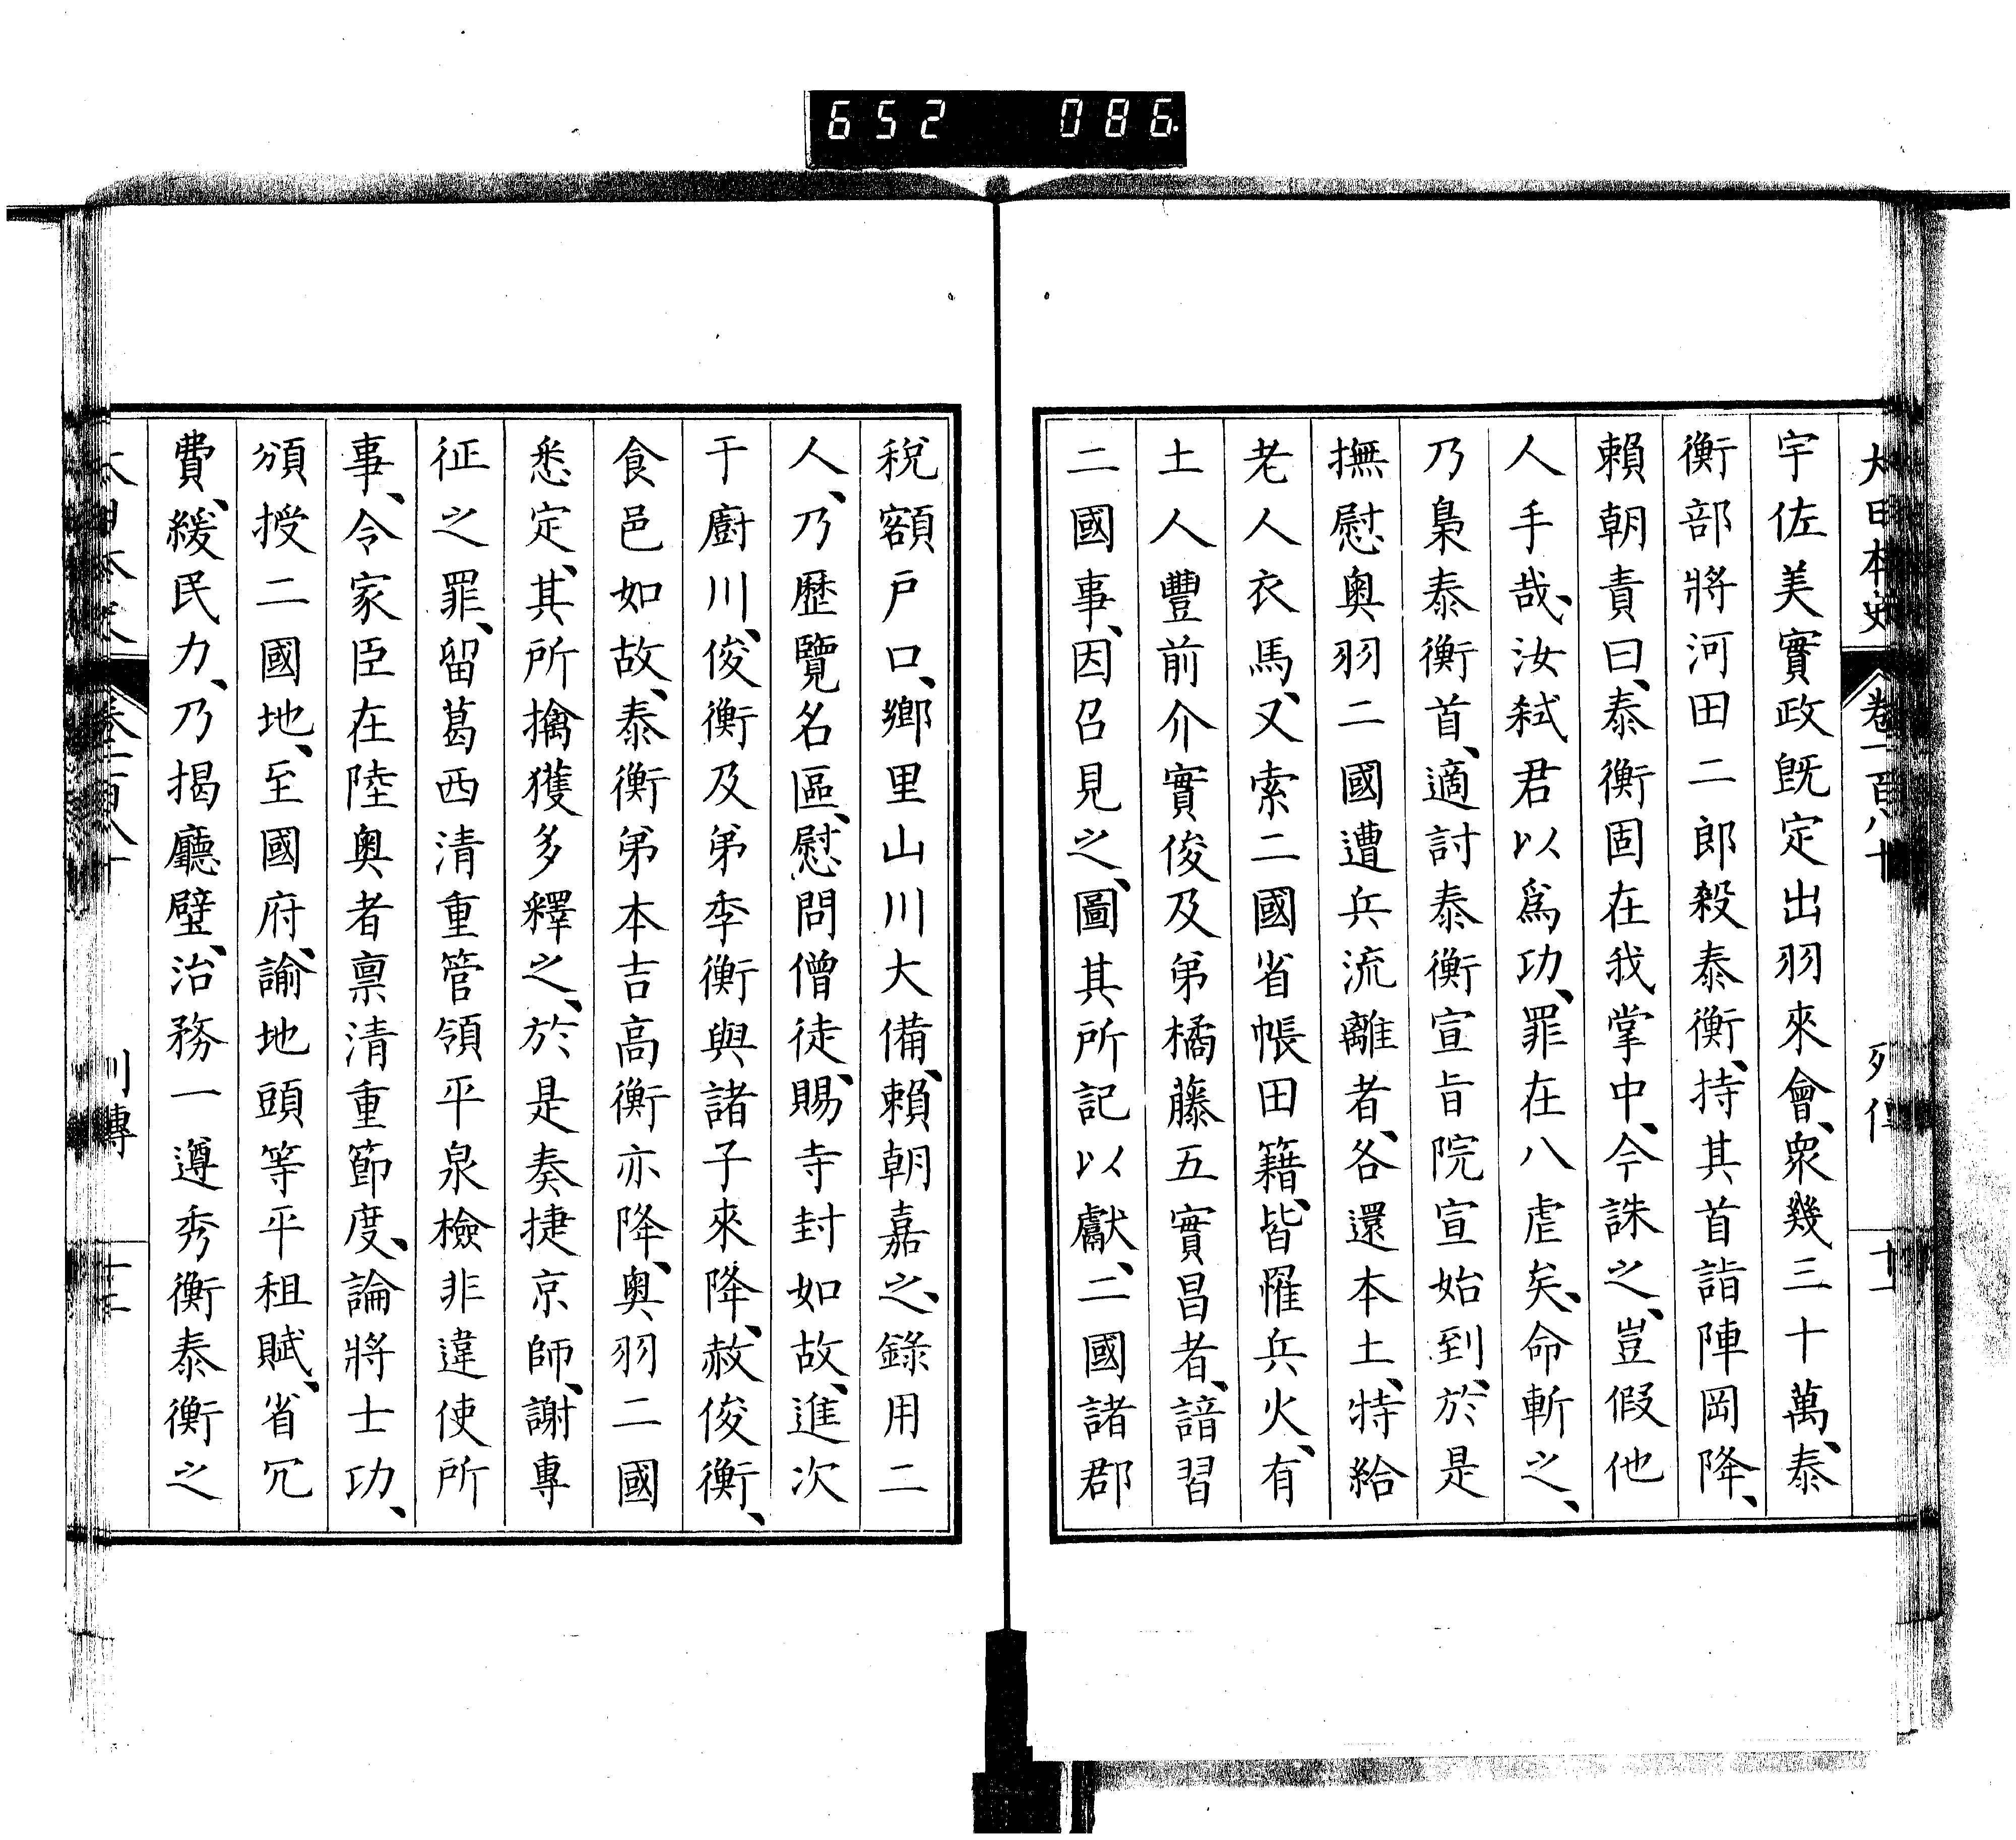 652 086
大日本史 卷一百八十 列傳 十一
宇佐美實政既定出羽來會、衆幾三十萬、泰
衡部將河田二郎殺泰衡、持其首詣陣岡降、
賴朝責曰、泰衡固在我掌中、今誅之、豈假他
人手哉、汝弑君以爲功、罪在八虐矣、命斬之、
乃梟泰衡首、適討泰衡宣旨院宣始到、於是
撫慰奧羽二國遭兵流離者、各還本土、特給
老人衣馬、又索二國省帳田籍、皆罹兵火、有
土人豐前介實俊及弟橘藤五實昌者、諳習
二國事、因召見之、圖其所記以獻、二國諸郡
稅額戶口、鄉里山川大備、賴朝嘉之、錄用二
人、乃歷覽名區、慰問僧徒、賜寺封如故、進次
于廚川、俊衡及弟季衡與諸子來降、赦俊衡、
食邑如故、泰衡弟本吉高衡亦降、奧羽二國
悉定、其所擒獲多釋之、於是奏捷京師、謝專
征之罪、留葛西清重管領平泉檢非違使所
事、令家臣在陸奧者稟清重節度、論將士功、
頒授二國地、至國府、諭地頭等平租賦、省冗
費、緩民力、乃揭廳壁、治務一遵秀衡泰衡之